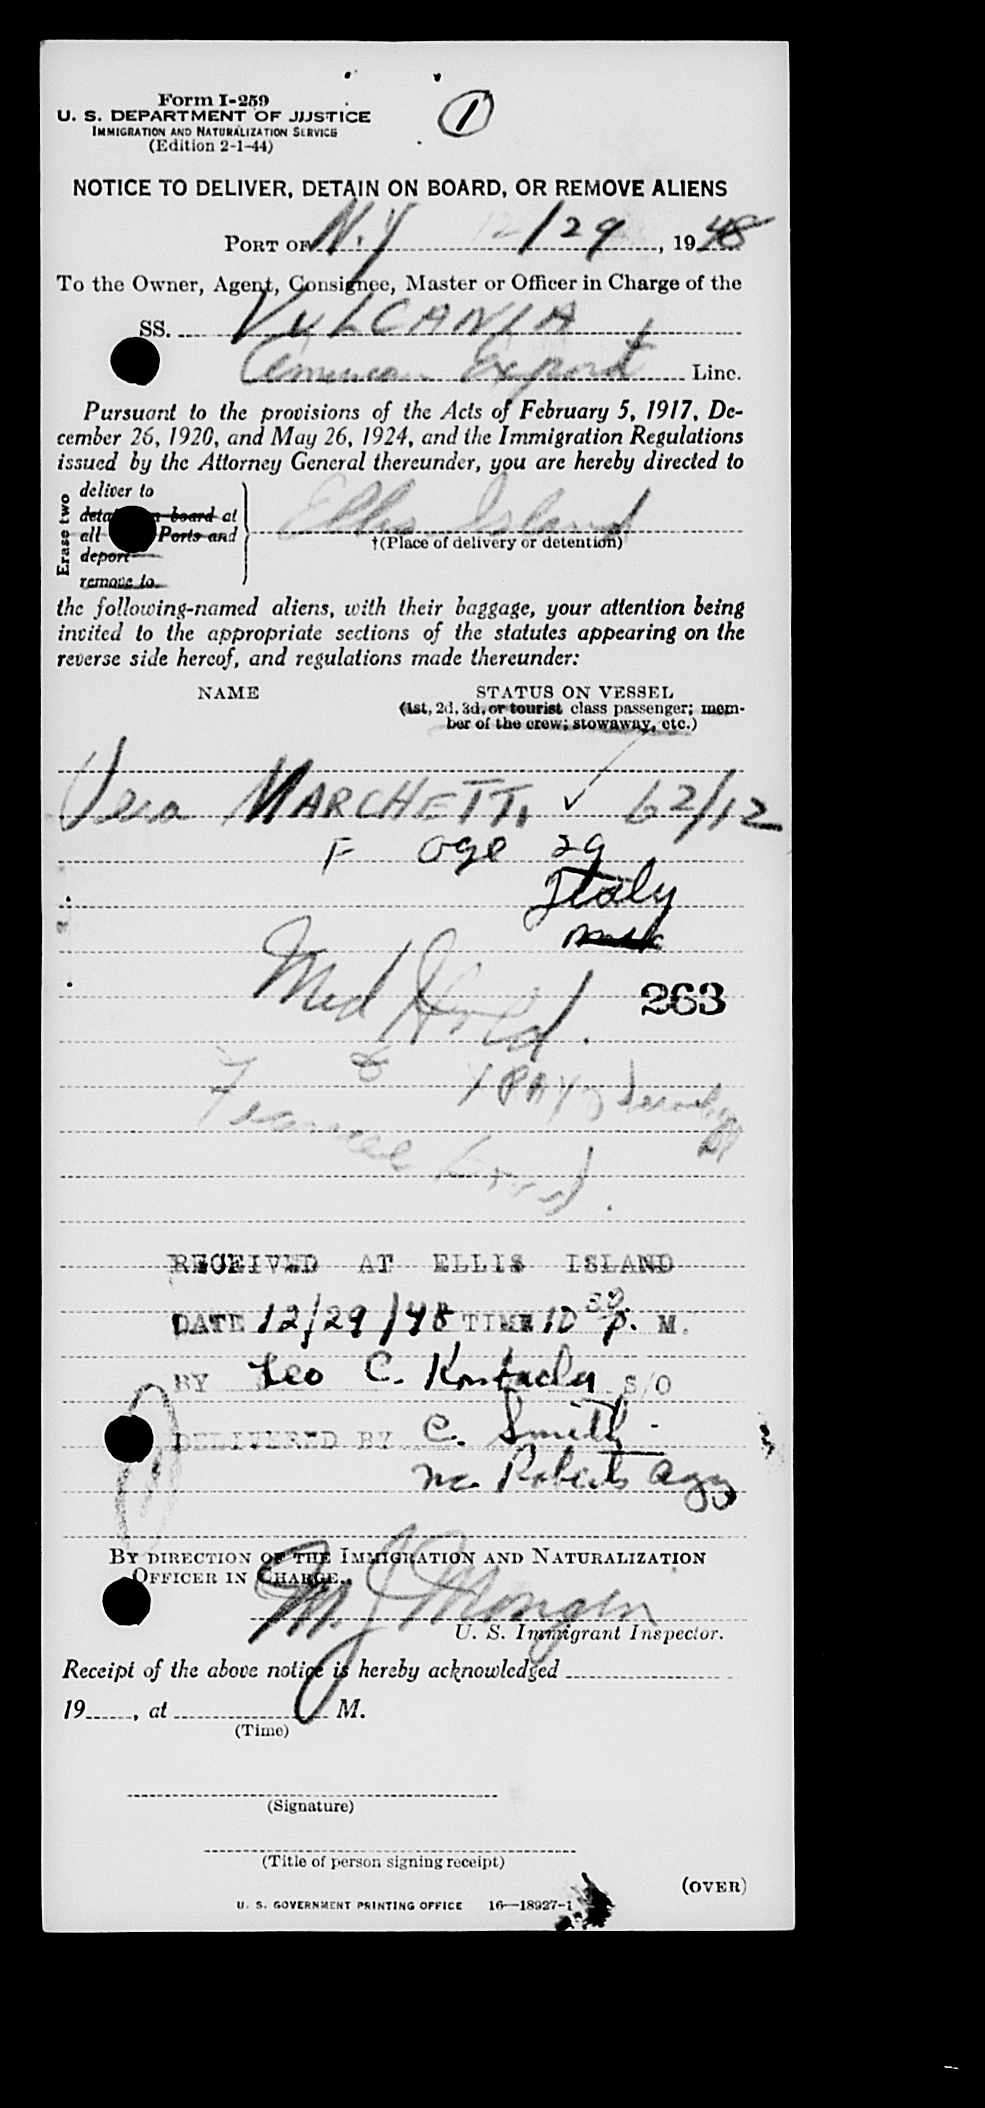 Form I-259
U. S. DEPARTMENT OF JUSTICE
IMMIGRATION AND NATURALIZATION SERVICE
(Edition 2-1-44)
1
NOTICE TO DELIVER, DETAIN ON BOARD, OR REMOVE ALIENS
PORT OF N.Y 12/29, 1948
To the Owner, Agent, Consignee, Master or Officer in Charge of the
SS. VULCANIA
American Export Line.
Pursuant to the provisions of the Acts of February 5, 1917, De-
cember 26, 1920, and May 26, 1924, and the Immigration Regulations
issued by the Attorney General thereunder, you are hereby directed to
Erase two
deliver to
board at
all Ports and
deport
remove to
Ellis Island
†(Place of delivery or detention)
the following-named aliens, with their baggage, your attention being
invited to the appropriate sections of the statutes appearing on the
reverse side hereof, and regulations made thereunder:
NAME STATUS ON VESSEL
(1st, 2d, 3d, or tourist class passenger; mem-
ber of the crew; stowaway, etc.)
Vera MARCHETTI ✓ 62/12
F age 29
Italy
Med Hold.
263
RECEIVED AT ELLIS ISLAND
DATE 12/29/48 TIME 10 30 P. M.
BY Leo C. S/O
DELIVERED BY C. Smith
Mc Roberts Agy
BY DIRECTION OF THE IMMIGRATION AND NATURALIZATION
OFFICER IN CHARGE.
U. S. Immigrant Inspector.
Receipt of the above notice is hereby acknowledged
19, at M.
(Time)
(Signature)
(Title of person signing receipt)
(OVER)
U. S. GOVERNMENT PRINTING OFFICE 16—18927-1